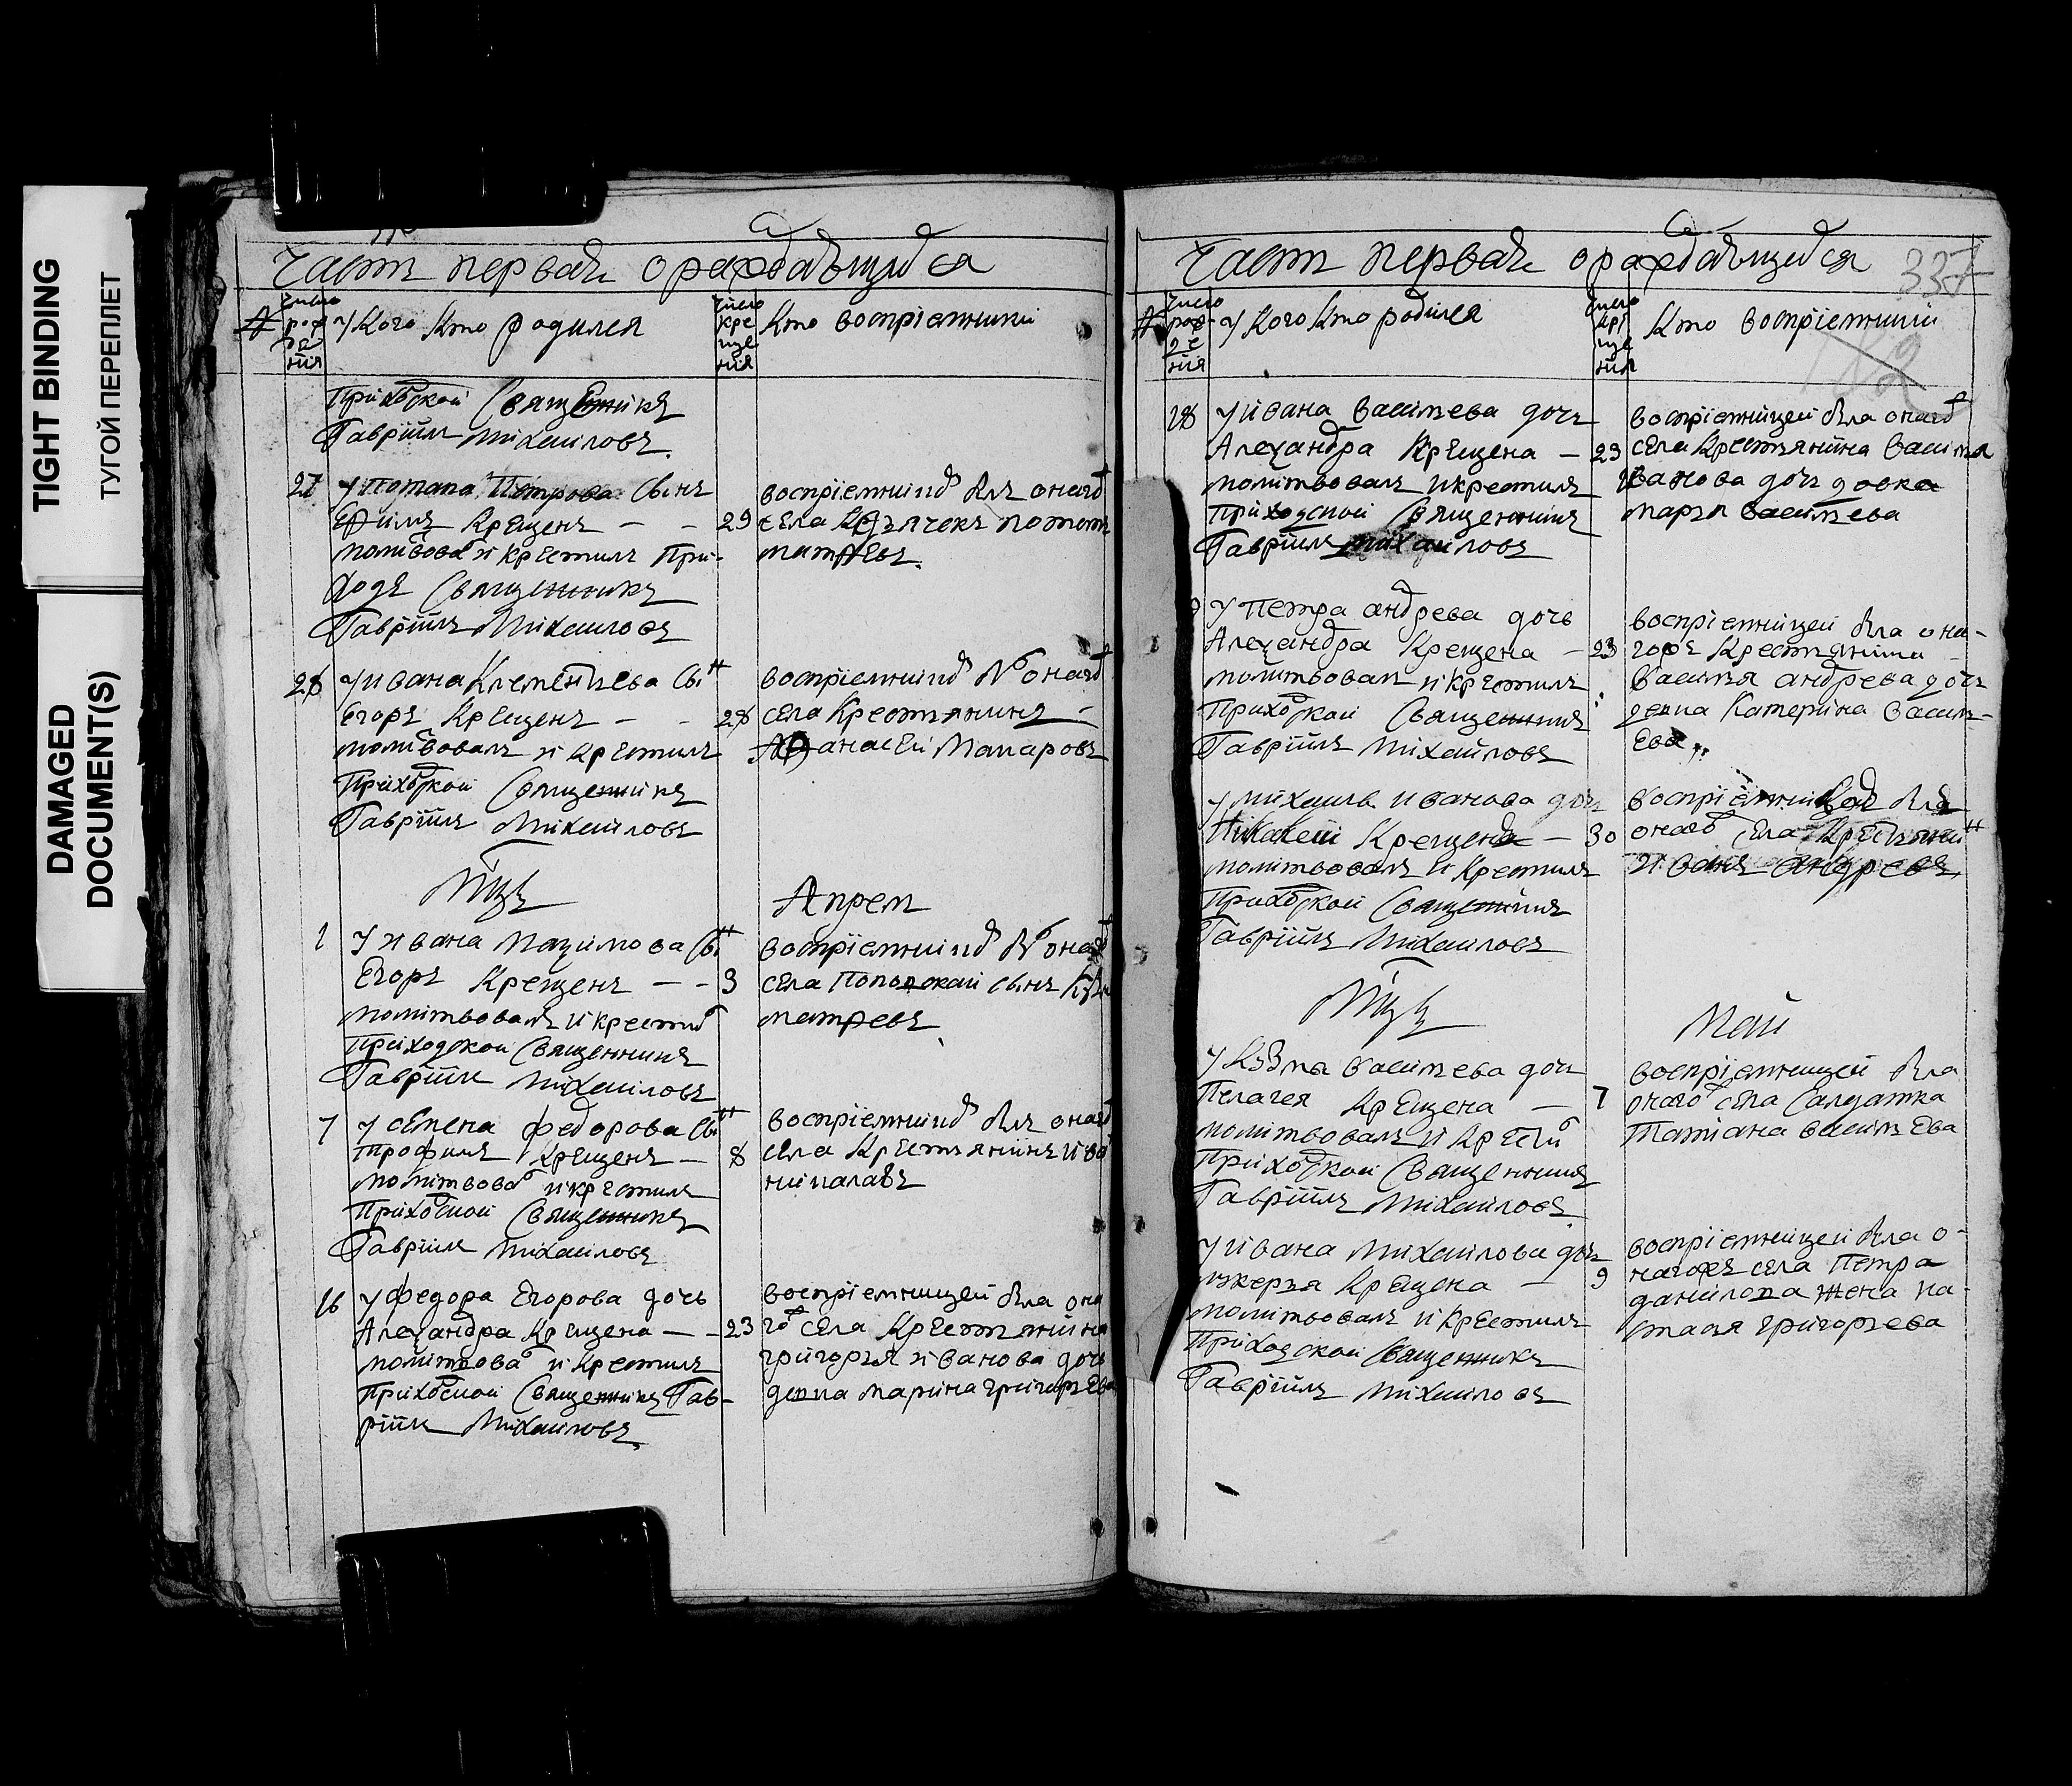 TIGHT BINDING
ТУГОЙ ПЕРЕПЛЕТ
DAMAGED
DOCUMENT(S)
Часть первая о раждающихся
число рождения
У Кого Кто родился
число крещения
Кто воспріемники
Приходской Священникъ
Гавріилъ Михаиловъ.
27
У Потапа Петрова Сынъ
Крещенъ — —
29
молитвова и крестилъ При-
ходс Священникъ
Гавріилъ Михаиловъ
воспріемником былъ онаго
села
28
У ивана Клементьева Сын
Егоръ Крещенъ — —
28
молитвовалъ и крестилъ
Приходской Священникъ
Гавріилъ Михаиловъ
воспріемником б онаго
села Крестьянинъ —
Афанасей Макаровъ
Мцъ
Апрель
1
У ивана Мазимова Сын
Егоръ Крещенъ — —
3
молитвовалъ и крестил
Приходской Священникъ
Гавріилъ Михаиловъ
воспріемником б онаго
села сынъ
7
У семена федорова Сын
Трофимъ Крещенъ —
8
молитвова и крестилъ
Приходской Священникъ
Гавріилъ Михаиловъ
воспріемником былъ онаго
села Крестьянинъ
16
У федора Егорова дочь
Алеѯандра Крещена — —
23
молитвова и крестилъ
Приходской Священникъ Гав-
ріилъ Михаиловъ.
воспріемницей была она
го села Крестьянина
григорья иванова дочь
девка марина григорьева
Часть первая о раждающихся
337
число рождения
У Кого Кто родился
число крещения
Кто воспріемники
18
У ивана васильева дочь
Алеѯандра Крещена —
23
молитвовалъ и крестилъ
Приходской Священникъ
Гавріилъ Михаиловъ
воспріемницей была онаго
села Крестьянина василья
иванова дочь девка
марья васильева
У Петра андрева дочь
Алеѯандра Крещена —
23
молитвовалъ и крестилъ
Приходской Священникъ
Гавріилъ Михаиловъ
воспріемницей была она-
гожъ Крестьянина
василья андрева дочь
девка Катерина Василь-
ева
У михаила иванова
Крещена —
30
молитвовалъ и крестилъ
Приходской Священникъ
Гавріилъ Михаиловъ
онаго села Крестьянин
иванъ андревъ
Мцъ
Май
У Кузмы васильева дочь
Пелагея Крещена —
7
молитвовалъ и крестил
Приходской Священникъ
Гавріилъ Михаиловъ
воспріемницей была
онаго села Салдатка
Татиана василь ева
У ивана михаилова дочь
Крещена —
9
молитвовалъ и крестилъ
Приходской Священникъ
Гавріилъ Михаиловъ
воспріемницей была о-
нагожъ села Петра
данилова жена на-
стасья григорьева